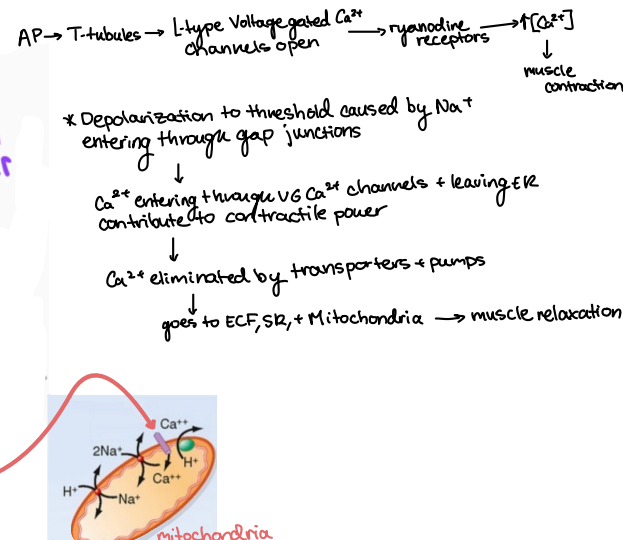 AP → T-tubules → L-type Voltage gated Ca²⁺ channels open → ryanodine receptors → ↑[Ca²⁺]
↓
muscle
contraction
* Depolarization to threshold caused by Na⁺
entering through gap junctions
↓
Ca²⁺ entering through VG Ca²⁺ channels + leaving ER
contribute to contractile power
↓
Ca²⁺ eliminated by transporters + pumps
↓
goes to ECF, SR, + Mitochondria → muscle relaxation
r
Ca⁺⁺
2Na⁺
H⁺
Ca⁺⁺
H⁺
Na⁺
mitochondria